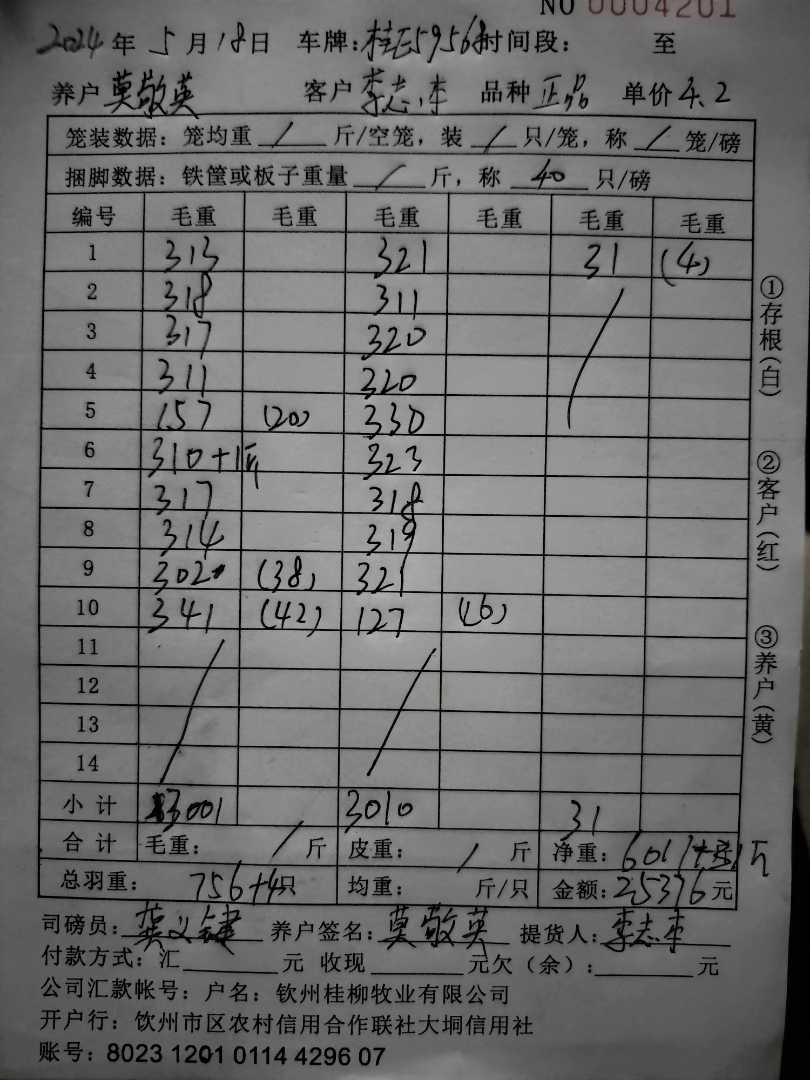 NO 0004201
2024年5月18日 车牌:桂E59568时间段: 至
养户 莫敬英 客户 李志 品种 正品 单价 4.2
笼装数据:笼均重 / 斤/空笼,装 / 只/笼,称 / 笼/磅
捆脚数据:铁筐或板子重量 / 斤,称 40 只/磅
编号 毛重 毛重 毛重 毛重 毛重 毛重
1 313 321 31 (4)
2 318 311
3 317 320
4 311 320
5 157 (20) 330
6 310+1斤 323
7 317 318
8 314 319
9 302 (38) 321
10 341 (42) 127 (16)
11
12
13
14
小计 3001 3010 31
合计 毛重: / 斤 皮重: / 斤 净重: 6011+31斤
总羽重: 756+4只 均重: 斤/只 金额:25376元
司磅员: 养户签名:莫敬英 提货人:李志
付款方式:汇 元 收现 元欠(余): 元
公司汇款帐号:户名:钦州桂柳牧业有限公司
开户行:钦州市区农村信用合作联社大垌信用社
账号:8023 1201 0114 4296 07
①存根(白)
②客户(红)
③养户(黄)